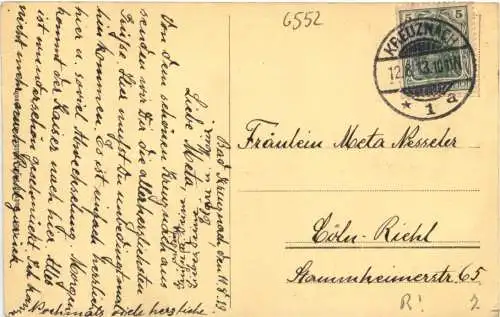 6552
5 5
KREUZNACH
12.8.13.10-11N
* 1 a
Bad Kreuznach, den 11.8.
Liebe Meta,
Von dem schönen Kreuznach aus
senden wir Dir die allerherzlichsten
Grüße. Hier mußt Du unbedingt mal
hin kommen. Es ist einfach herrlich
hier u. soviel Abwechselung. Morgen
kommt der Kaiser nach hier. Alles
ist wunderschön geschmückt. Ich kann
nicht mehr
Nochmals viele herzliche
Fräulein Meta Nesseler
Cöln-Riehl
Stammheimerstr. 65
R!
2